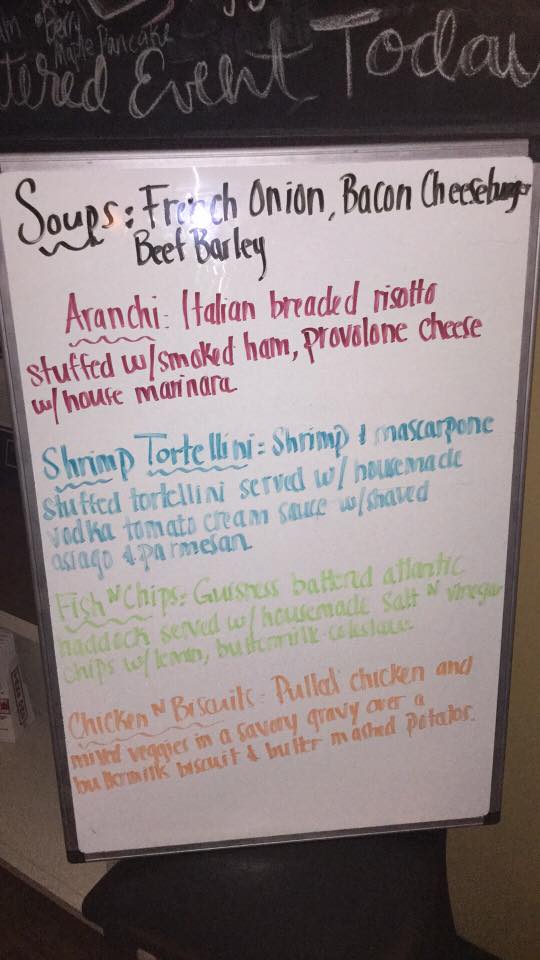 Berry
Maple Pancake
tered Event Today
Soups: French Onion, Bacon Cheeseburger
Beef Barley
Aranchi: Italian breaded risotto
stuffed w/smoked ham, provolone cheese
w/house marinara
Shrimp Tortellini: Shrimp & mascarpone
stuffed tortellini served w/ housemade
vodka tomato cream sauce w/shaved
asiago & parmesan
Fish N Chips: Guisness battered atlantic
haddock served w/housemade Salt N vinegar
chips w/lemon, buttermilk coleslaw.
Chicken N Biscuits: Pulled chicken and
mixed veggies in a savory gravy over a
buttermilk biscuit & butter mashed potatos.